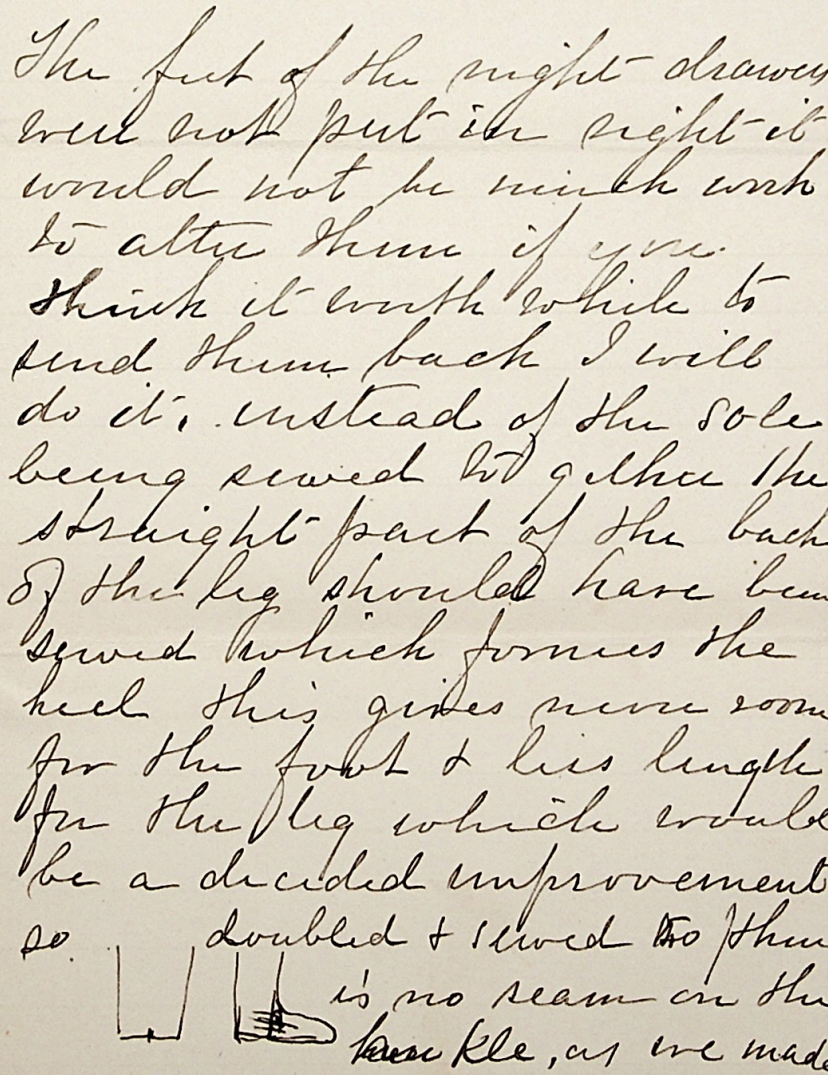 The feet of the night drawers
were not put in right it
would not be much work
to alter them if you
think it worth while to
send them back I will
do it, instead of the sole
being sewed to gether the
straight part of the back
of the leg should have been
sewed which formes the
heel this gives more room
for the foot & less length
for the leg which would
be a decided improvement
so doubled & sewed so then
is no seam on the
kle, as we made